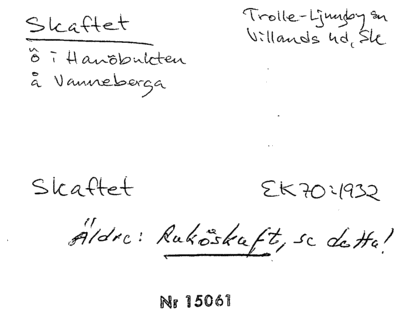 Skaftet
Trolle-Ljungby sn
Villands hd, Sk
ö i Hanöbukten
å Vanneberga
Skaftet
EK70:1932
Äldre: Raköskaft, se detta!
Nr 15061